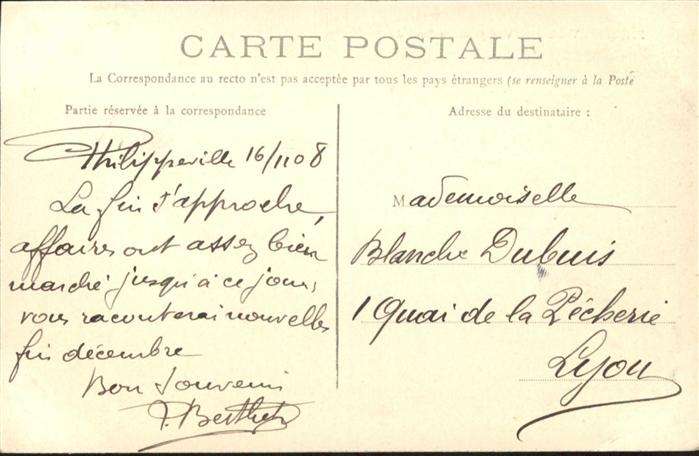 CARTE POSTALE
La Correspondance au recto n'est pas acceptée par tous les pays étrangers (se renseigner à la Poste
Partie réservée à la correspondance
Philippeville 16/1108
La fin s'approche,
affaires ont assez bien
marché jusqu'à ce jour,
vous raconterai nouvelles
fin décembre
Bon Souvenir
Adresse du destinataire :
Mademoiselle
Blanche Dubuis
1 Quai de la Pêcherie
Lyon